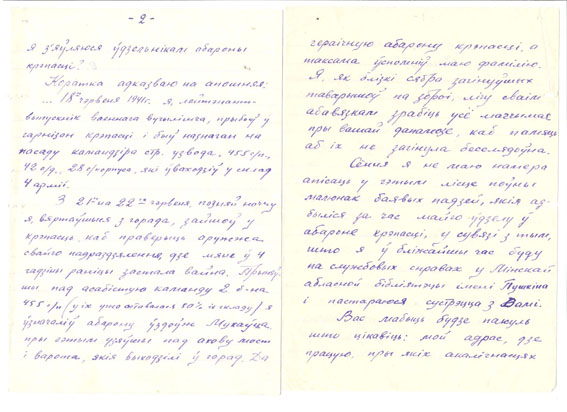 - 2 -
я з'яўляюся ўдзельнікам абароны
крэпасці?
Коратка адказваю на апошняе:
... 18го чэрвеня 1941г. я, лейтэнант-
выпускнік ваеннага вучылішча, прыбыў у
гарнізон крэпасці і быў назначан на
пасаду камандзіра стр. узвода, 455 с/п.,
42 с/д., 28 с/корпуса, які ўваходзіў у склад
4 арміі.
З 21го на 22ое чэрвеня, позняй ноччу
я, вяртаўшыся з горада, зайшоў у
крэпасць, каб праверыць аружжа
свайго падраздзялення, дзе мяне ў 4
гадзіны раніцы застала вайна. Прыняў-
шы пад асабістую каманду 2 б-на
455 с/п (у іх 50% складу) я
ўзначаліў абарону ўздоўж Мухаўца
пры гэтым узяўшы пад ахову мост
і варота, якія выходзілі ў горад. Да
гераічную абарону крэпасці, а
таксама ўспомніў маю фамілію.
Я, як блізкі сябра загінуўшых
таварышоў па зброі, лічу сваім
абавязкам зрабіць усё магчымае
пры вашай дапамозе, каб памяць
аб іх не загінула бясследна.
Сёння я не маю намера
апісаць у гэтым лісце поўны
малюнак баявых падзей, якія ад-
быліся за час майго ўдзелу ў
абароне крэпасці, у сувязі з тым,
што я ў бліжэйшы час буду
па службовых справах у Мінскай
абласной бібліятэцы імені Пушкіна
і пастараюся сустрэцца з Вамі.
Вас мабыць будзе
што цікавіць: мой адрас, дзе
працую, пры якіх